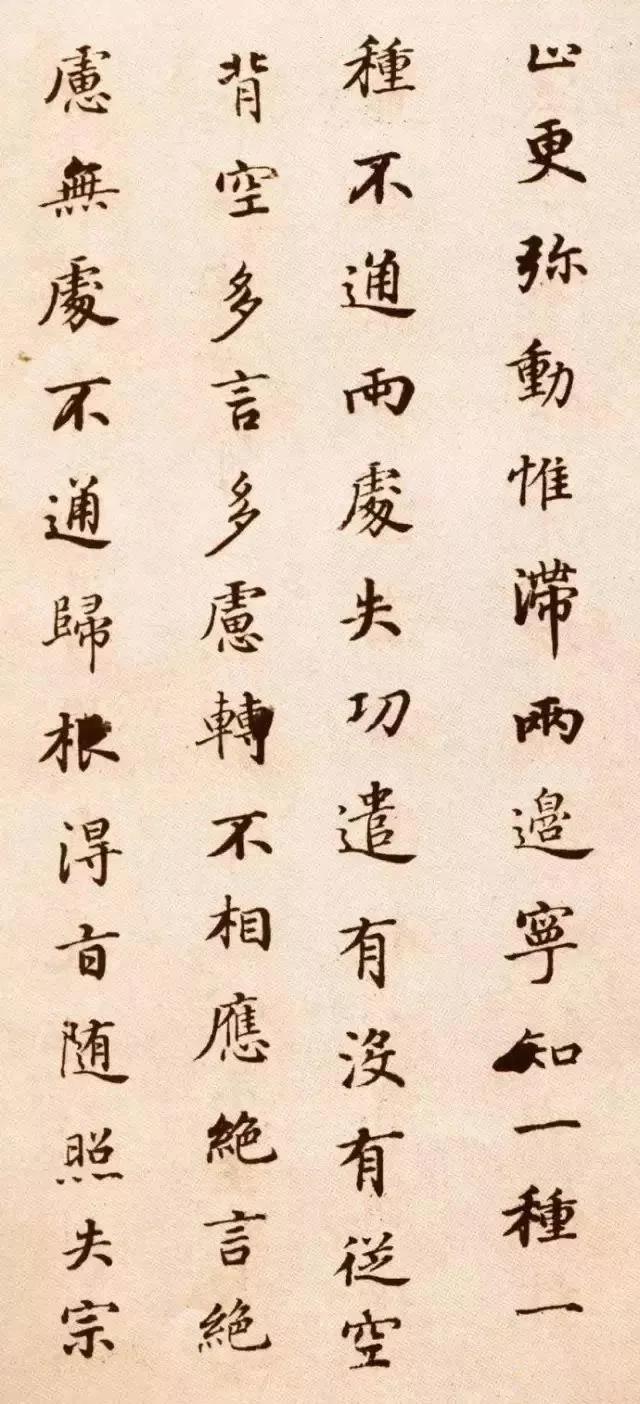 止更弥動惟滯兩邊寧知一種一
種不通兩處失功遣有沒有從空
背空多言多慮轉不相應絕言絕
慮無處不通歸根得旨随照失宗